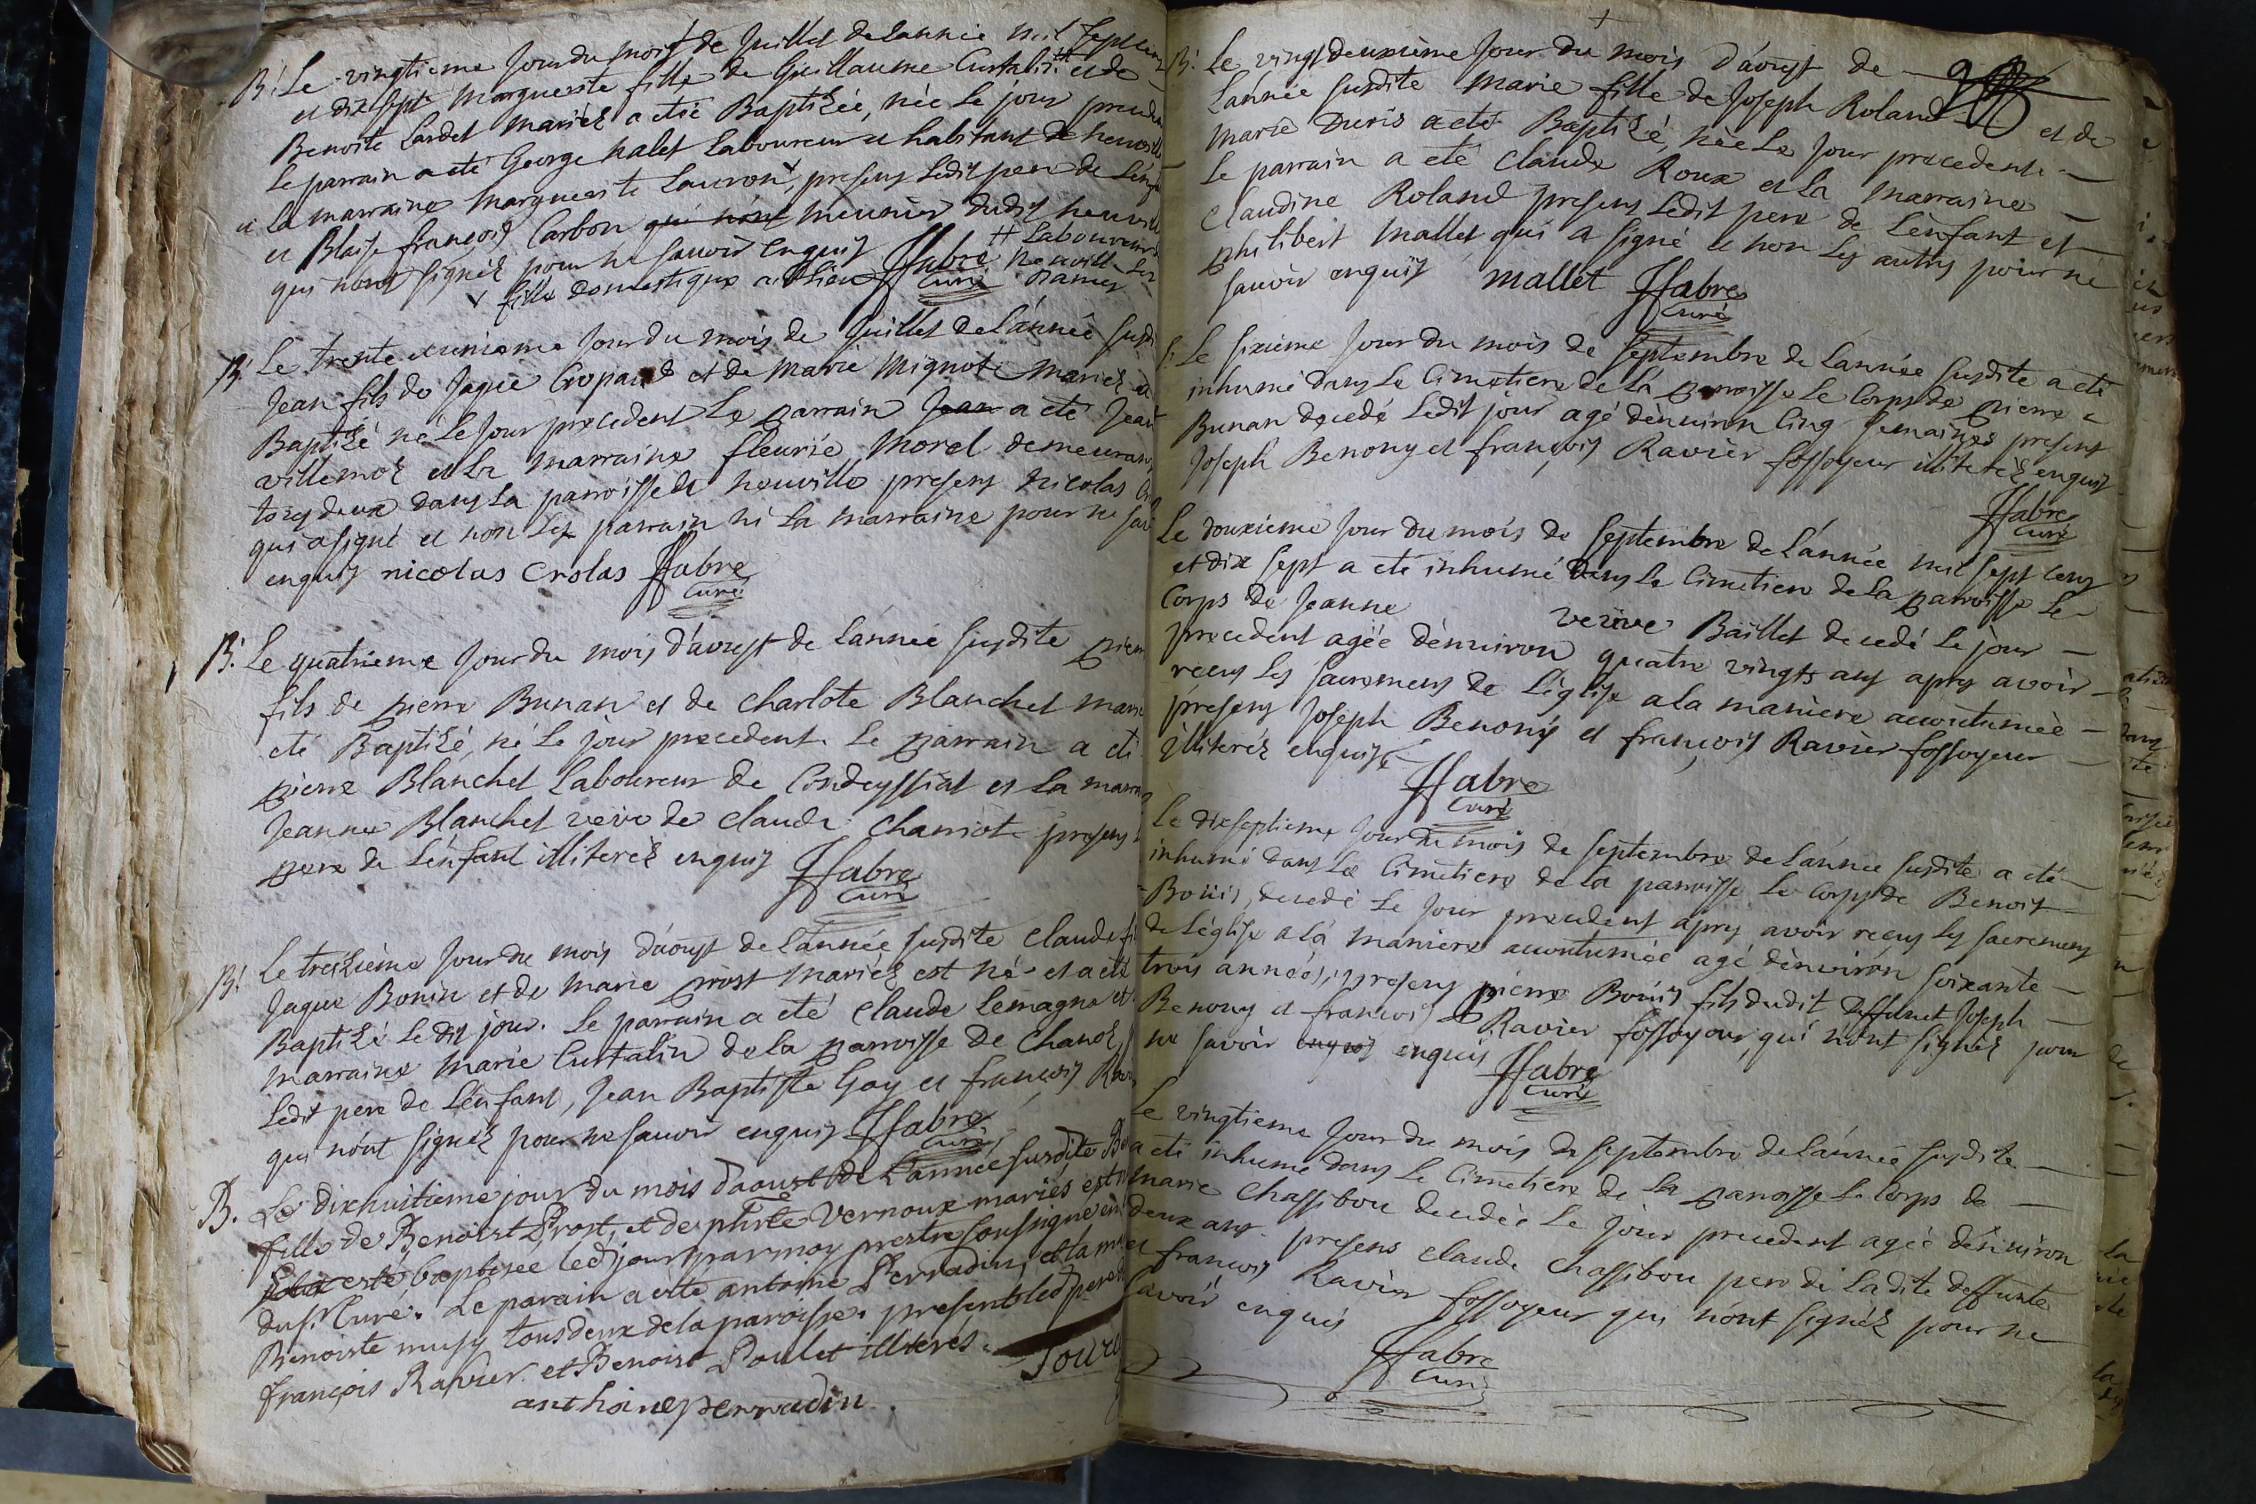 B. Le vingtieme Jour du mois de Juillet de lannée mil sept cens
et dix sept Marguerite fille de Guillaume Curtalin ++ et de
Benoite Lardet mariéz a etté Baptizée, née le jour preced
Le parrain a eté George halet Laboureur et habitant de neuville
et la marraine Marguerite Lauron v, presens ledit pere de Lenf
et Blaise françois Carbon qui n'ont meunier dudit neuvill
qui n'ont signéz pour ne savoir enquis ffabre curé ++ Laboureur
v fille domestique audit lieu neuville Les Dames
B. Le trente unieme Jour du mois de Juillet de L'année susd
Jean fils de Jaque Cropard et de Marie Mignot Mariéz a
Baptizé né le jour precedent Le parrain Jean a eté Jean
villemoz et La marraine fleurie Morel demeurant
tous deux dans La parroisse de neuville presens Nicolas
qui a signé et non Les parrain ni La marraine pour ne sav
enquis nicolas crolas ffabre
curé
B. Le quatrieme Jour du mois d'aoust de L'année susdite pierr
fils de pierre Bunan et de Charlote Blanchet mari
eté Baptizé, né Le jour precedent. Le parrain a eté
pierre Blanchet Laboureur de Condeyssiat et La marra
Jeanne Blanchet veve de Claude Charriot presens
pere de L'enfant illiteréz enquis ffabre
curé
B. Le treizième Jour du mois d'aoust de L'année susdite Claude fi
Jaque Bonin et de Marie prost Mariéz est né et a eté
Baptizé Le dit jour. Le parrain a eté Claude Lemagne et
marraine Marie Curtalin de la parroisse de Chanoz,
Ledit pere de L'enfant, Jean Baptiste Gay et françois Rav
qui n'ont signéz pour ne savoir enquis ffabre
curé
B. Le dixhuitieme jour du mois d'aoust de l'année susdite Be
fille de Benoist Prost, et de phte Vernoux mariés est
esté baptisée led jour par moy prestre soussigné en
du sr. Curé. Le parain a etté antoine Perradin, et la m
Benoiste musy tous deux de la paroisse. presents led pere
françois Ravier et Benoist Poulet illiterés.
anthoine perradin.
B. Le vingt deuxième Jour du mois d'aoust de
L'année susdite Marie fille de Joseph Roland et de
Marie Duris a eté Baptizé, née Le Jour precedent.
Le parrain a eté Claude Roux et La marraine
Claudine Roland presens Ledit pere de L'enfant et
philibert Mallet qui a signé et non Les autres pour ne
savoir enquis mallet ffabre
curé
S. Le sixième Jour du mois de septembre de L'année susdite a eté
inhumé dans Le Cimetiere de La parroisse Le Corps de pierre
Bunan decedé Ledit jour agé d'environ cinq semaines presens
Joseph Benony et françois Ravier fossoyeur illiteréz enquis
ffabre
curé
Le douxieme Jour du mois de septembre de L'année mil sept cens
et dix sept a eté inhumé dans Le Cimetiere de La parroisse Le
Corps de Jeanne veuve Baillet decedé Le jour
precedent agée d'environ quatre vingts ans apres avoir
receus Les sacremens de L'église a la maniere accoutumée
presens Joseph Benony et françois Ravier fossoyeur
illiteréz enquis
ffabre
curé
Le diseptieme Jour du mois de septembre de L'année susdite a eté
inhumé dans Le Cimetiere de La parroisse Le Corps de Benoist
Boüis, decedé Le Jour precedent apres avoir receus Les sacremens
de L'église a la maniere accoutumée agé d'environ soixante
trois années, presens pierre Boüis fils dudit deffunct Joseph
Benony et françois Ravier fossoyeur, qui n'ont signéz pour
ne savoir enquis enquis ffabre
curé
Le vingtieme Jour du mois de septembre de L'année susdite
a eté inhumé dans Le Cimetiere de La parroisse Le Corps de
Marie Chassibou decedée Le Jour precedent agée d'environ
deux ans. presens Claude Chassibou pere de Ladite deffunte
et françois Ravier fossoyeur qui n'ont signéz pour ne
savoir enquis
ffabre
curé